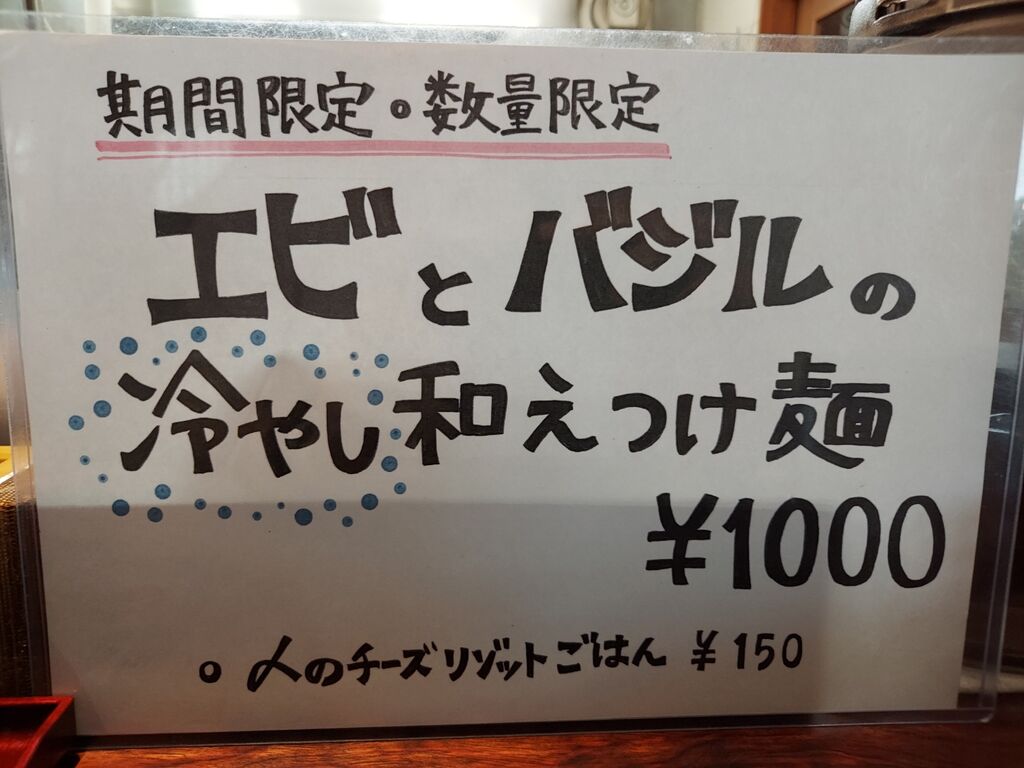 期間限定。数量限定
エビとバジルの
冷やし和えつけ麺
¥1000
〆のチーズリゾットごはん ¥150